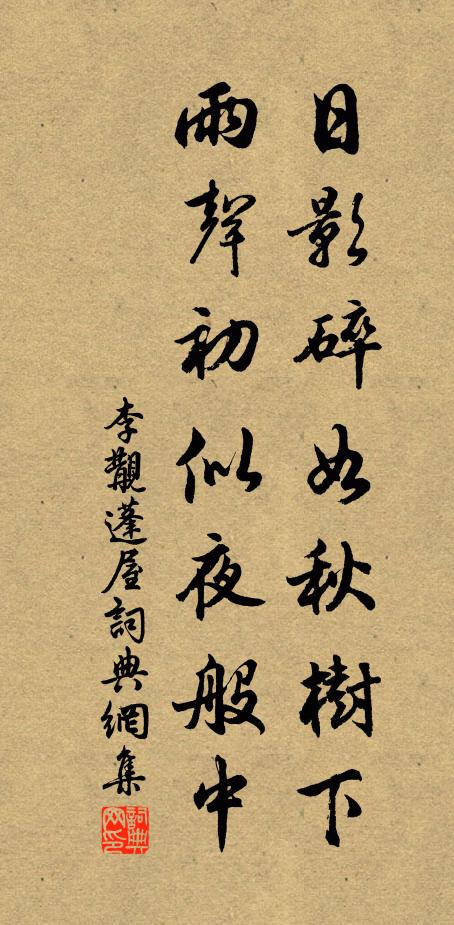 日影碎如秋樹下
雨聲初似夜船中
李覯蓬屋詞典網集
詞典
网印